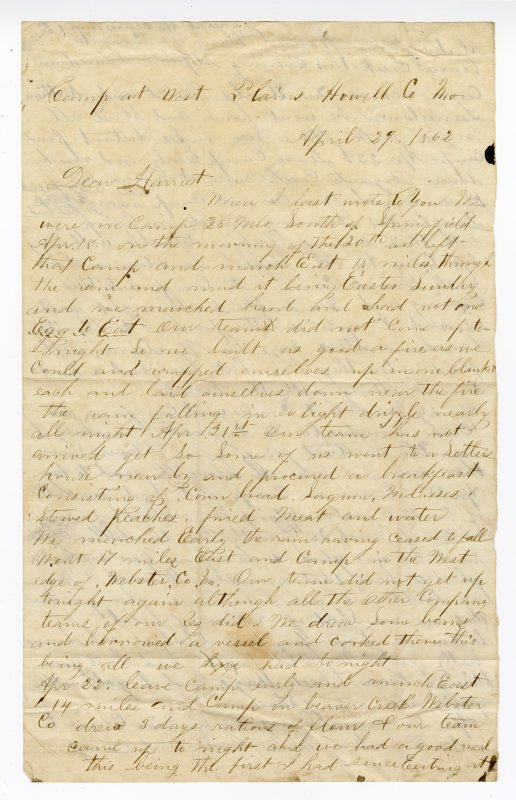 Camp at West Plains Howell Co Mo.
April 29. 1862
Dear Harriet
When I last wrote to You We
were in Camp 25 Mls South of Springfield
Apr 18 on the morning of the 20th we left
that Camp and march East 15 miles through
the rain and mud it being Easter Sunday
and we marched hard and had not one
Egg to Eat Our teams did not Come up to
night So we built as good a fire as we
Could and wrapped ourselves up in one blanket
each and laid ourselves down near the fire
the rain falling in a light drizzle nearly
all night Apr 21st Our team has not
arrived yet So Some of us went to a Settlers
house near by and procured a breakfast
Consisting of Corn bread, Sorgum, Molasses,
Stewed Peaches, fried Meat and water
We marched Early the rain having ceased to fall
Went 17 miles East and Camp in the West
edge of Webster Co Mo. Our team did not get up
tonight again although all the other Company
teams of our Reg did. We drew Some beans
and borrowed a vessel and cooked them this
being all we have had to night
Apr 22. leave Camp early and march East
14 miles and Camp on beaver Creek Webster
Co drew 3 days rations of flour & our team
came up to night and we had a good meal
this being the first I had since Eating at